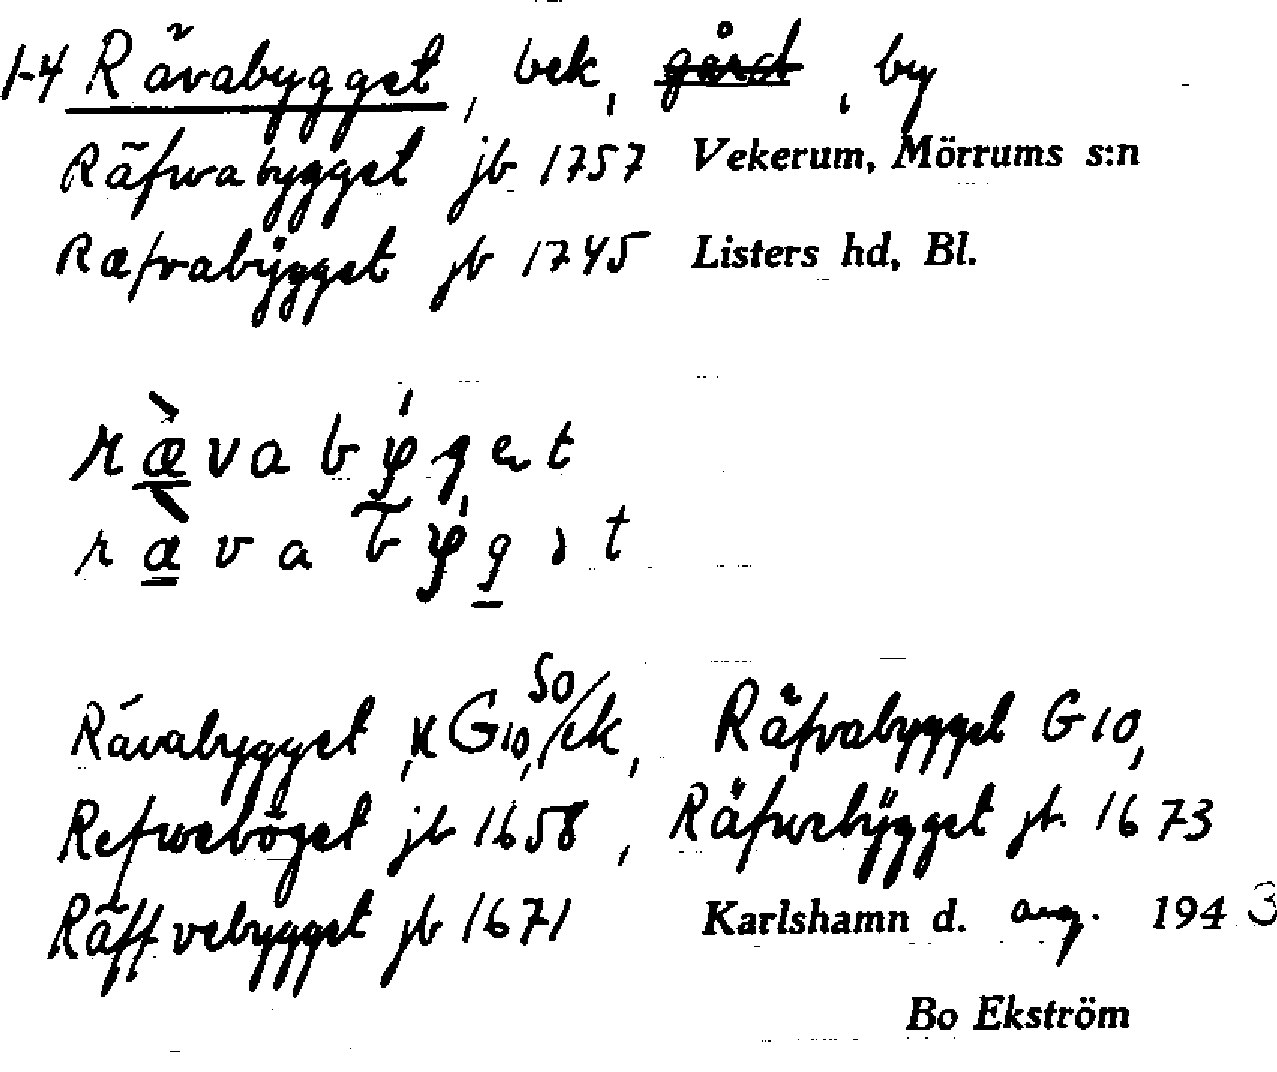 1-4 Rävabygget, bek, gård, by
Räfwabygget jb 1757 Vekerum, Mörrums s:n
Ræfvabÿgget jb 1745 Listers hd, Bl.
rävabygget
rävabygət
Rävabygget, K G10, 50/ek, Räfvabygget G10,
Refweböget jb 1658, Räfwebÿgget jb. 1673
Räffvebygget jb 1671 Karlshamn d. aug. 1943
Bo Ekström